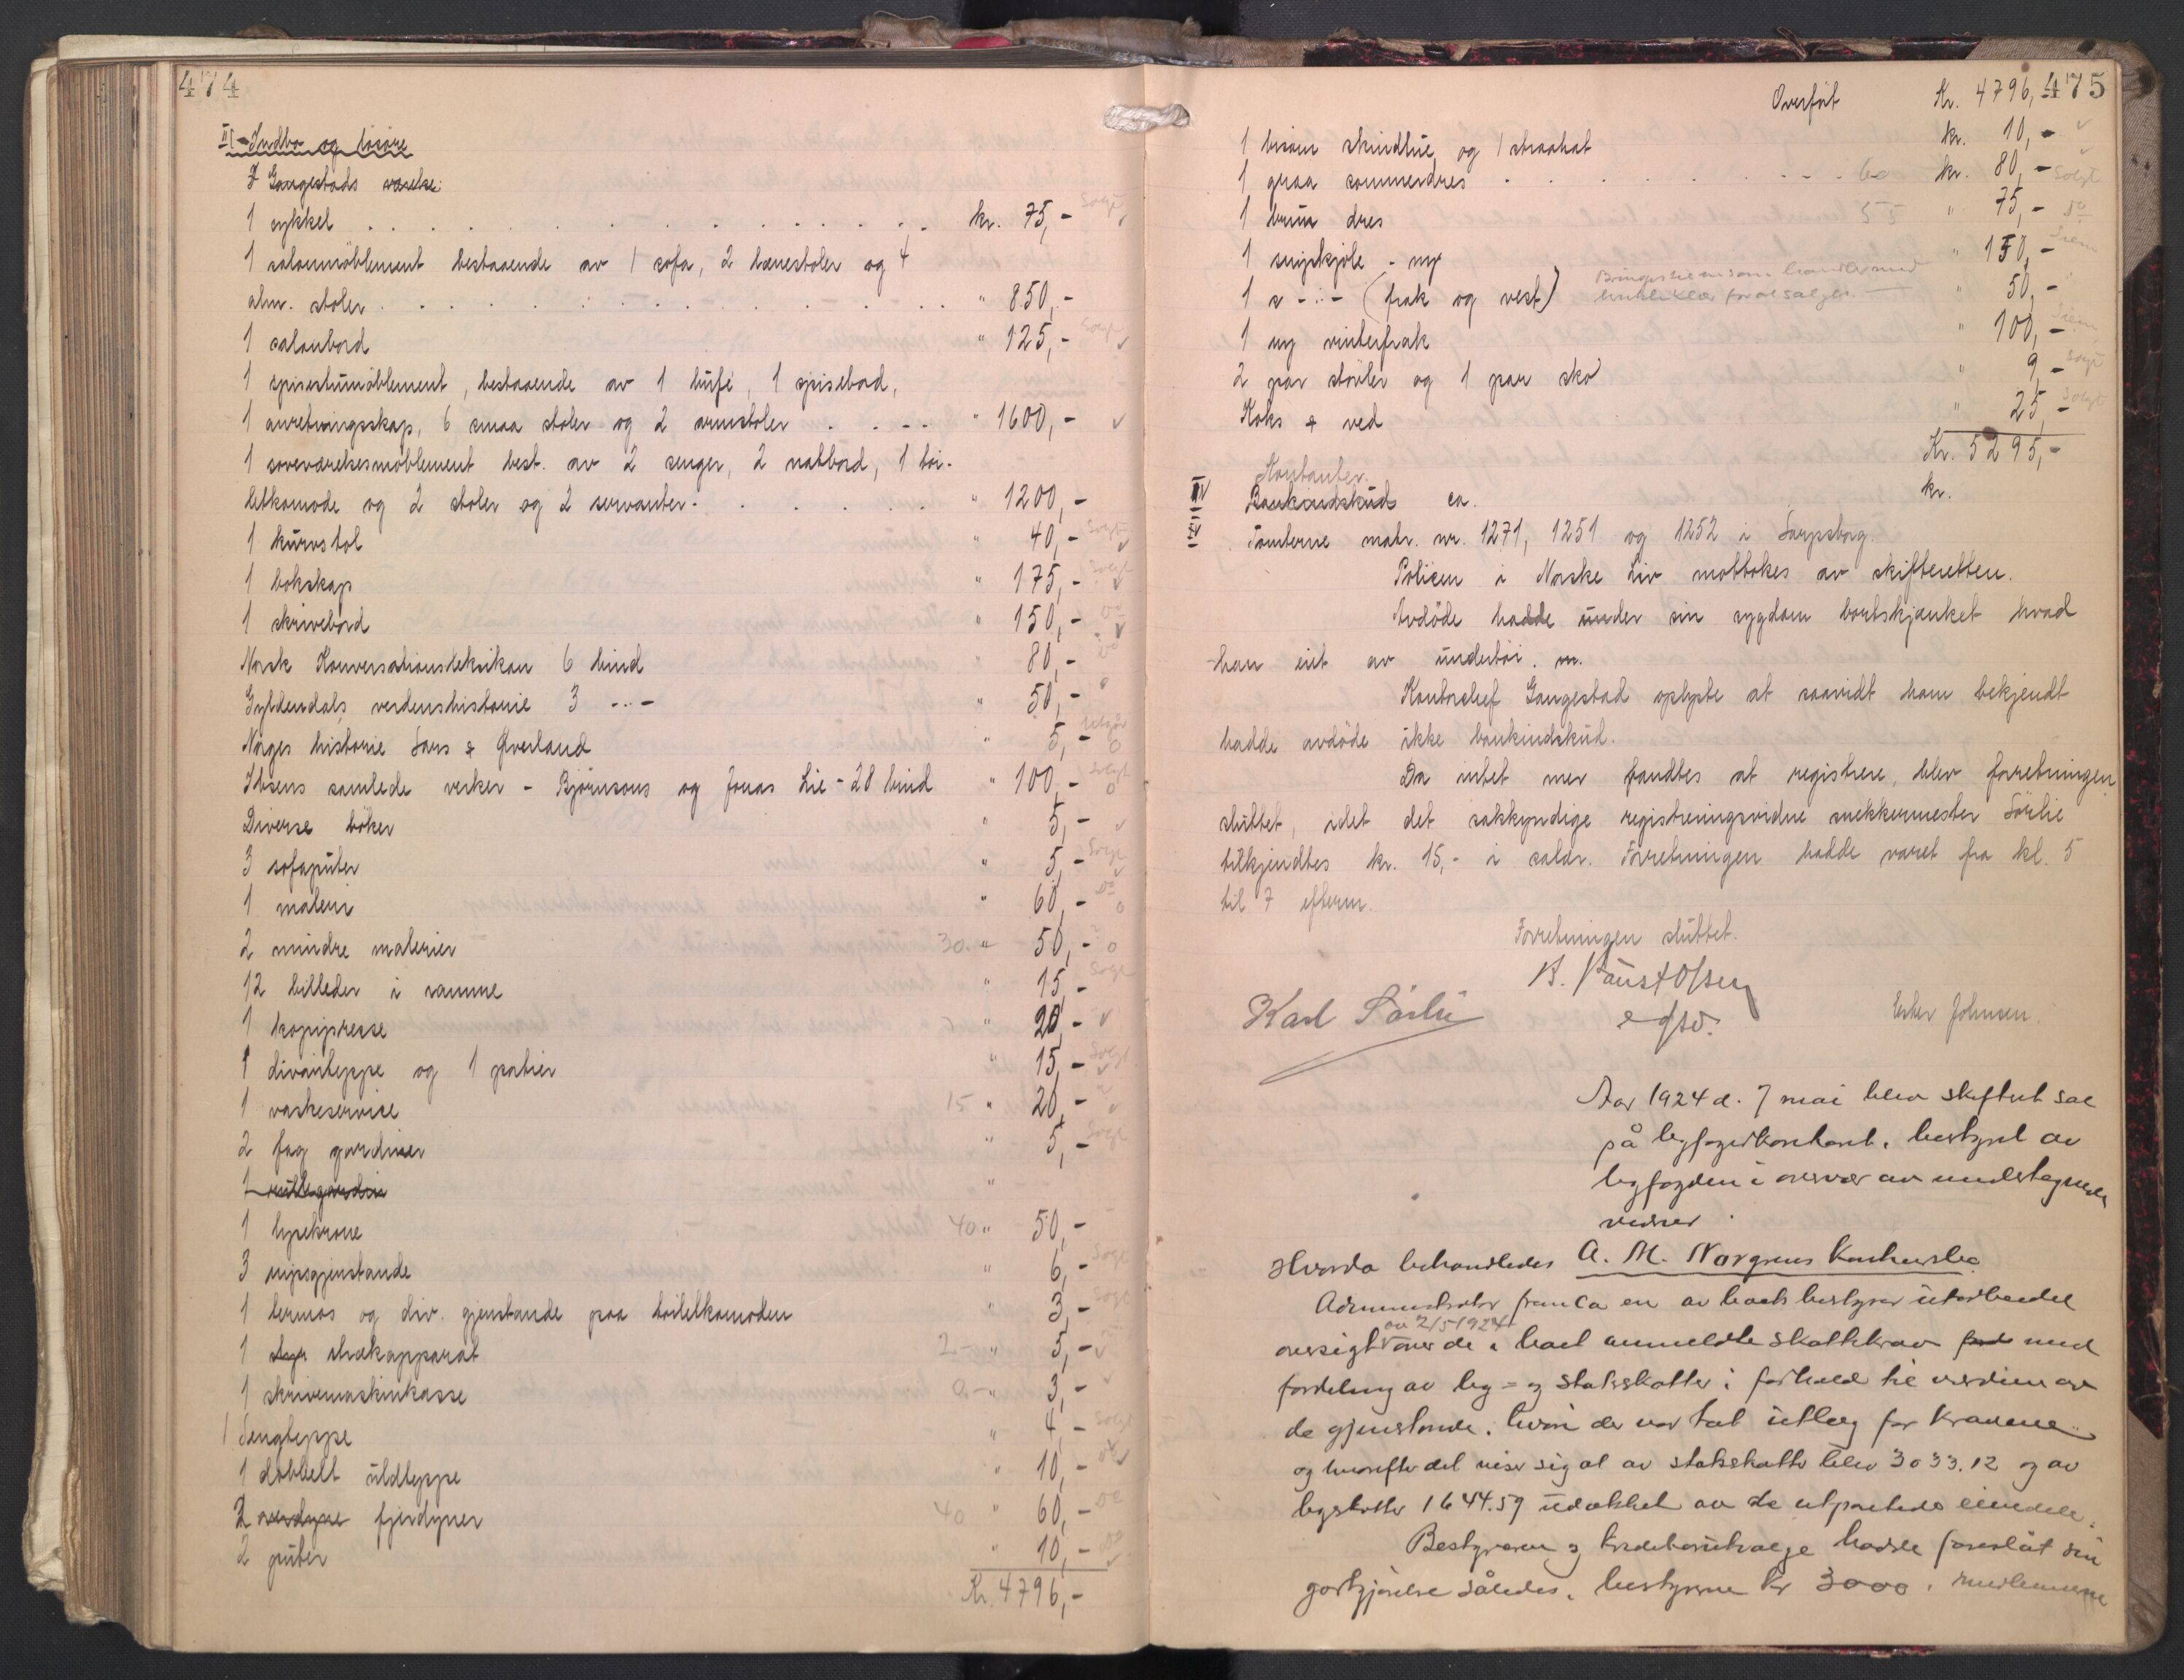 474
II Indbo og løsøre
I Gangestads værelse:
1 sykkel . . . . . . . . . kr. 75,- Solgt
1 salonmöblement bestaaende av 1 sofa, 2 lænestoler og 4
alm. stoler . . . . . . . . . " 850,-
1 salonbord " 125,- Solgt
1 spisestuemöblement, bestaaende av 1 buffé, 1 spisebord,
1 anretningsskap, 6 smaa stoler og 2 armstoler . . . " 1600,-
1 soveværelsesmöblement best. av 2 senger, 2 natbord, 1 toi-
letkomode og 2 stoler og 2 servanter . . . . . " 1200,-
1 kurvstol " 40,- Solgt
1 bokskap " 175,- Solgt
1 skrivebord " 150,- Do
Norsk Konversationsleksikon 6 bind " 80,- Do
Gyldendals verdenshistorie 3 -"- " 50,-
Norges historie Sars & Øverland " 5,-
Ibsens samlede verker - Björnsons og Jonas Lie - 28 bind " 100,- Solgt
Diverse böker " 5,-
3 sofaputer " 5,- Solgt
1 maleri " 60,- Do
2 mindre malerier 30.- " 50,-
12 billeder i ramme " 15,- Solgt
1 kopipresse " 20,-
1 divanteppe og 1 portier " 15,- Solgt
1 vaskeservise 15 " 20,-
2 fag gardiner " 5,- Solgt
1 rullegardin "
1 lysekrone 40 " 50,-
3 nipsgjenstande " 6,- Solgt
1 termos og div. gjenstande paa toiletkomoden " 3,- Solgt
1 shækapparat 2- " 5,-
1 skrivemaskinkasse " 3,-
1 Sengteppe " 4,- Solgt
1 dobbelt uldteppe " 10,- Do
2 overdyne fjerdyner 40 " 60,- Do
2 puter " 10,- Do
Kr. 4796,-
475
Overført Kr. 4796,-
1 bisam skindlue og 1 straahat kr. 10,-
1 graa sommerdres . . . . . . 60 kr. 80,- Solgt
1 brun dres 55 " 75,- Do
1 snipkjole - ny " 150,-
1 s -"- (frak og vest) " 50,-
1 ny vinterfrak " 100,-
2 par stövler og 1 par sko " 9,- Solgt
Koks & ved " 25,- Solgt
Kr. 5295,-
Kontanter.
Bankindskud ca. kr.
Tomterne matr. nr. 1271, 1251 og 1252 i Sarpsborg.
Policen i Norske Liv mottokes av skifteretten.
Avdöde hadde under sin sygdom bortskjænket hvad
han eiet av undertöi. m.
Kontorchef Gangestad oplyste at saavidt ham bekjendt
hadde avdöde ikke bankindskud.
Da intet mer fandtes at registrere, blev forretningen
sluttet, idet det sakkyndige registreringsvidne snekkermester Sörlie
tilkjendtes kr. 15,- i salær. Forretningen hadde varet fra kl. 5
til 7 efterm.
Forretningen sluttet.
B. Faust Olsen
Karl Sörlie
Ester Johnsen.
Aar 1924 d. 7 mai blev skifteret sat
på byfogedkontoret, bestyret av
byfogden i overvær av undertegnede
vidner.
Hvorda behandledes A. M. Norgrens konkursbo
Administrator fremla en av boets bestyrer utarbeidet
av 2/5 1924
oversigt over de i boet anmeldte skattekrav med
fordeling av by- og statsskatter i forhold til værdien av
de gjenstande, hvori der var tat utlæg for kravene
og hvorefter det viser sig at av statsskatter blev 3033.12 og av
byskatter 1644.59 udækket av de utpantede eiendele.
Bestyreren og kreditorutvalget hadde foreslåt sin
godtgjørelse således: bestyreren kr 3000, medlemmerne